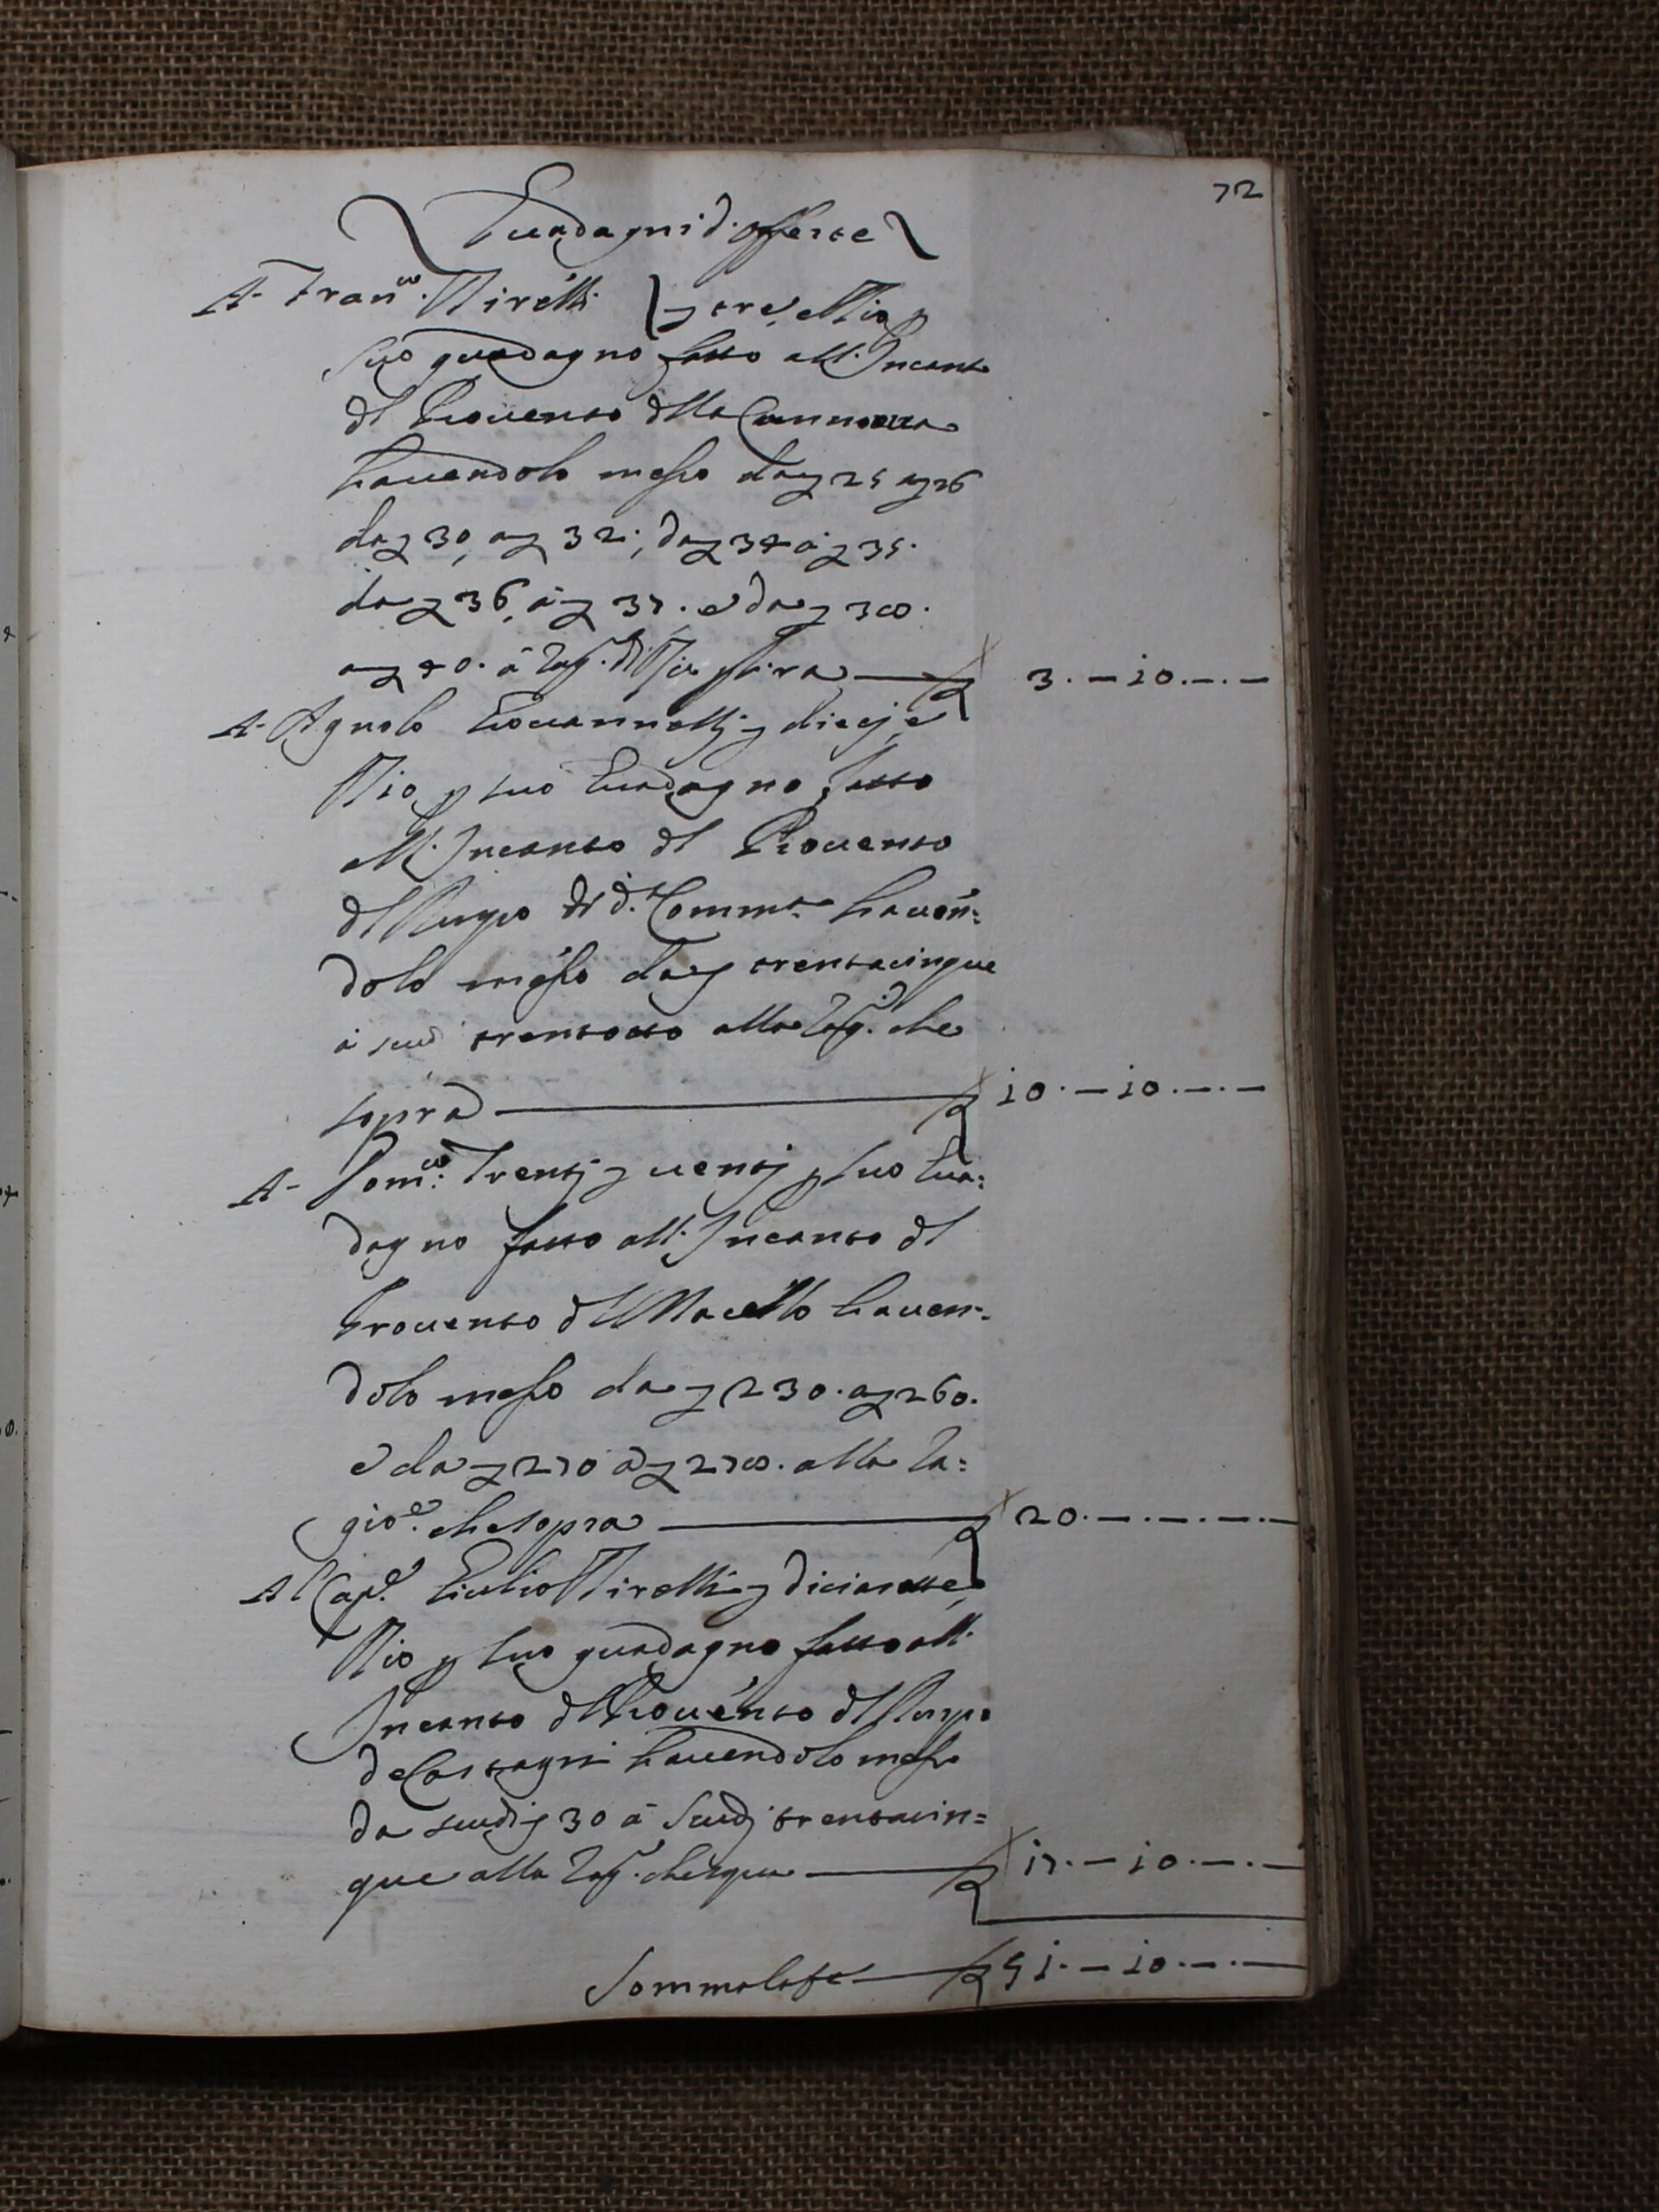 72
Guadagni d'offerte
A- Fran.co Nirelli ∇ tre, e Mio p
suo guadagno fatto all'Incant
dl Provento dlla Cannova
havendolo messo da ∇ 25 a ∇ 26
da ∇ 30, a ∇ 32; da ∇ 34 a ∇ 35.
da ∇ 36, à ∇ 37. e da ∇ 38.
a ∇ 40. à rag. di
3.-10.-.-
A- Agnolo Giovannelli ∇ dieci, e
Mio p suo Guadagno fatto
all'Incanto dl Provento
dl di d. Comm.a haven:
dolo messo da ∇ trentacinque
à scud trentotto alla rag. che
sopra 10.-10.-.-
A- Dom.co Trenti ∇ venti p suo Gua:
dagno fatto all'Incanto dl
Provento dl Macello haven:
dolo messo da ∇ 230. a ∇ 260.
e da ∇ 270 à ∇ 278. alla ra:
gio.e che sopra 20.-.-.-
Al Cap.o Giulio Nirelli ∇ diciasette,
Mio p suo guadagno fatto all'
Incanto dl Provento dl
de Castagni havendolo messo
da scudi ∇ 30 à scudi trentacin=
que alla rag. che sopra 17.-10.-.-
Somma 51.-10.-.-